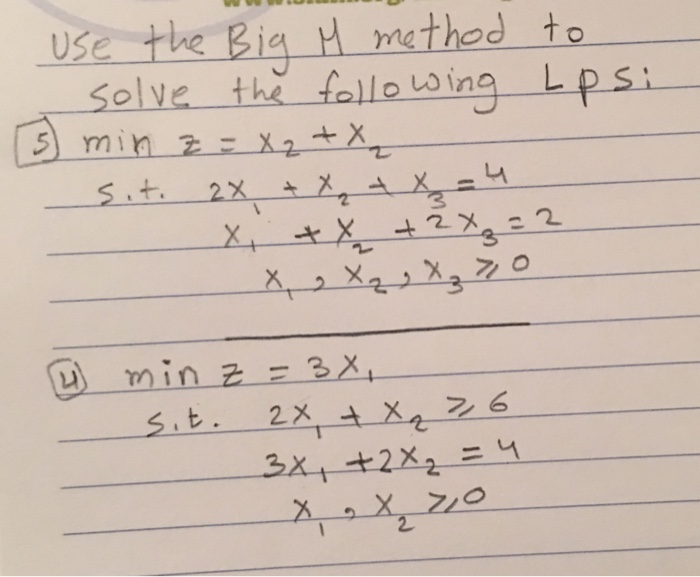 Use the Big M method to
solve the following Lps:
5) min z = x₂ + x₂
s.t. 2x₁ + x₂ + x₃ = 4
x₁ + x₂ + 2x₃ = 2
x₁, x₂, x₃ ≥ 0
4) min z = 3x₁
s.t. 2x₁ + x₂ ≥ 6
3x₁ + 2x₂ = 4
x₁, x₂ ≥ 0